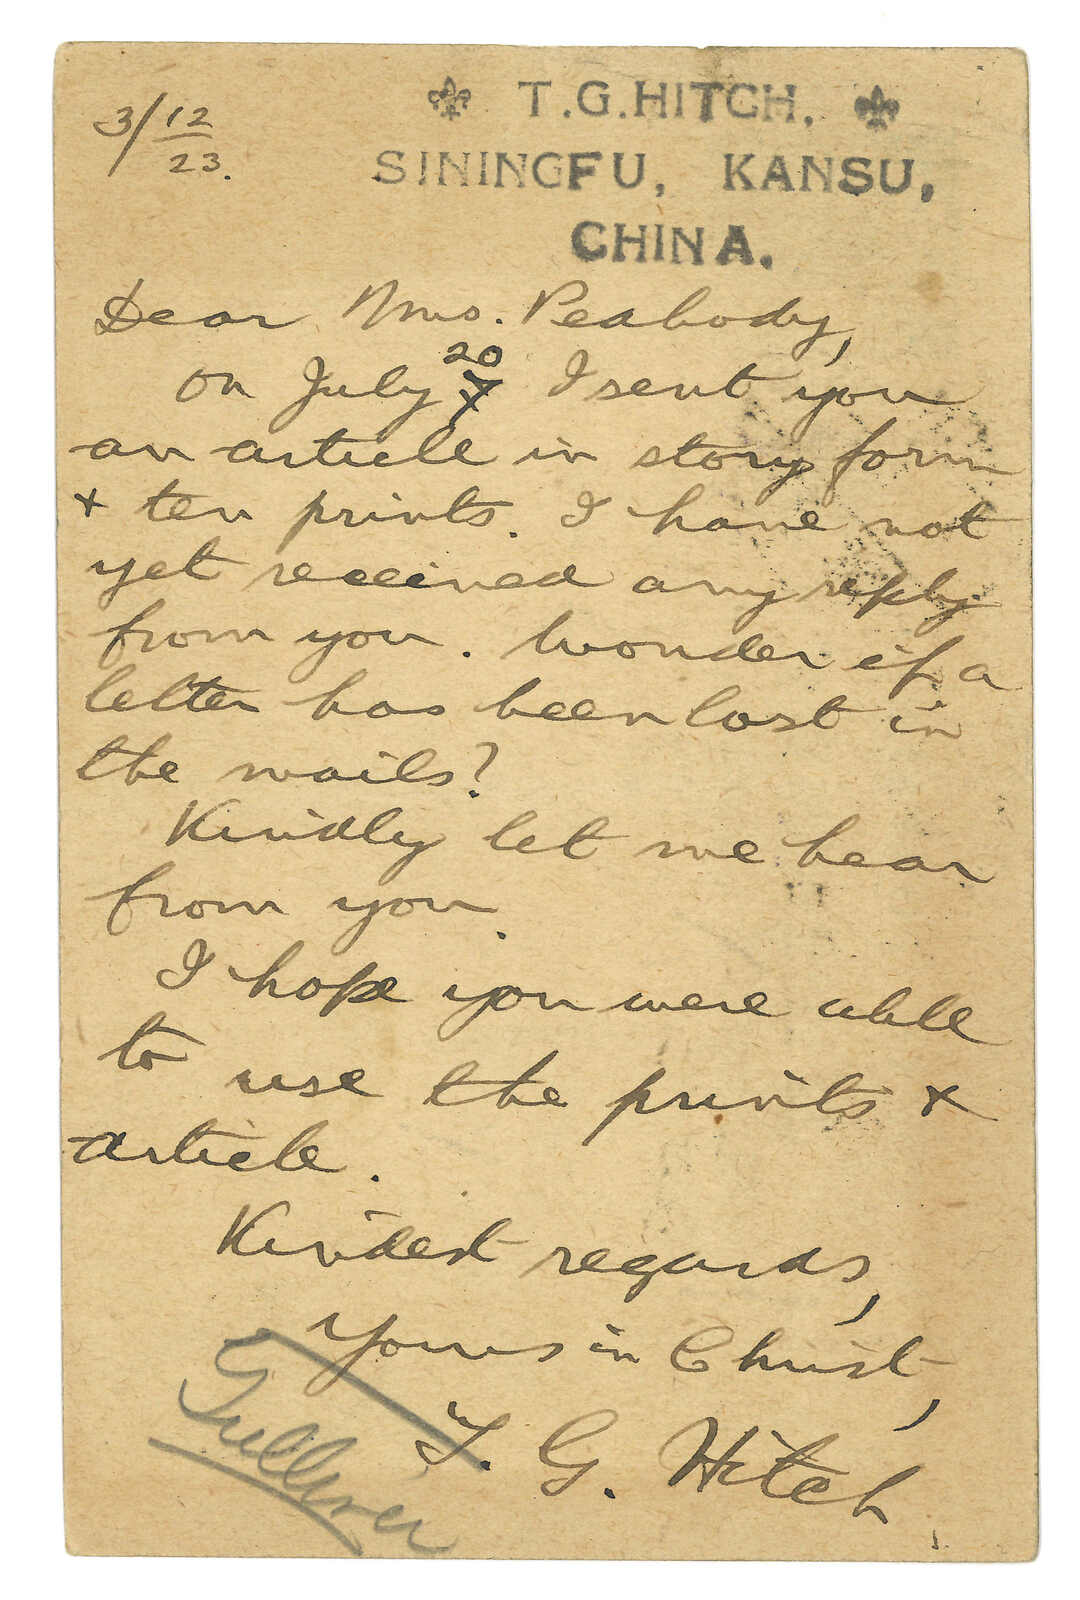 3/12/23.
T.G.HITCH,
SININGFU, KANSU,
CHINA.
Dear Mrs. Peabody,
On July 20 I sent you
an article in story form
+ ten prints. I have not
yet received any reply
from you. Wonder if a
letter has been lost in
the mails?
Kindly let me hear
from you.
I hope you were able
to use the prints +
article.
Kindest regards,
Yours in Christ,
T. G. Hitch.
Gulliver